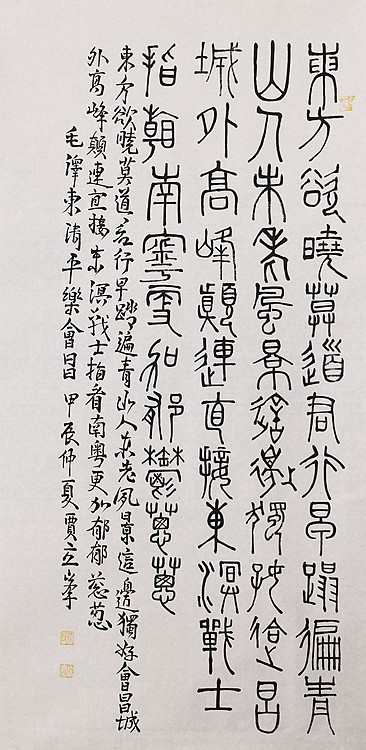 東方欲曉莫道君行早蹋徧青
山人未老風景這邊獨好會昌
城外高峰顛連直接東溟戰士
指看南粵更加郁鬱蔥蔥
東方欲曉莫道君行早踏遍青山人未老風景這邊獨好會昌城
外高峰顛連直接東溟戰士指看南粵更加郁郁蔥蔥
毛澤東清平樂會昌 甲辰仲夏賈立峯